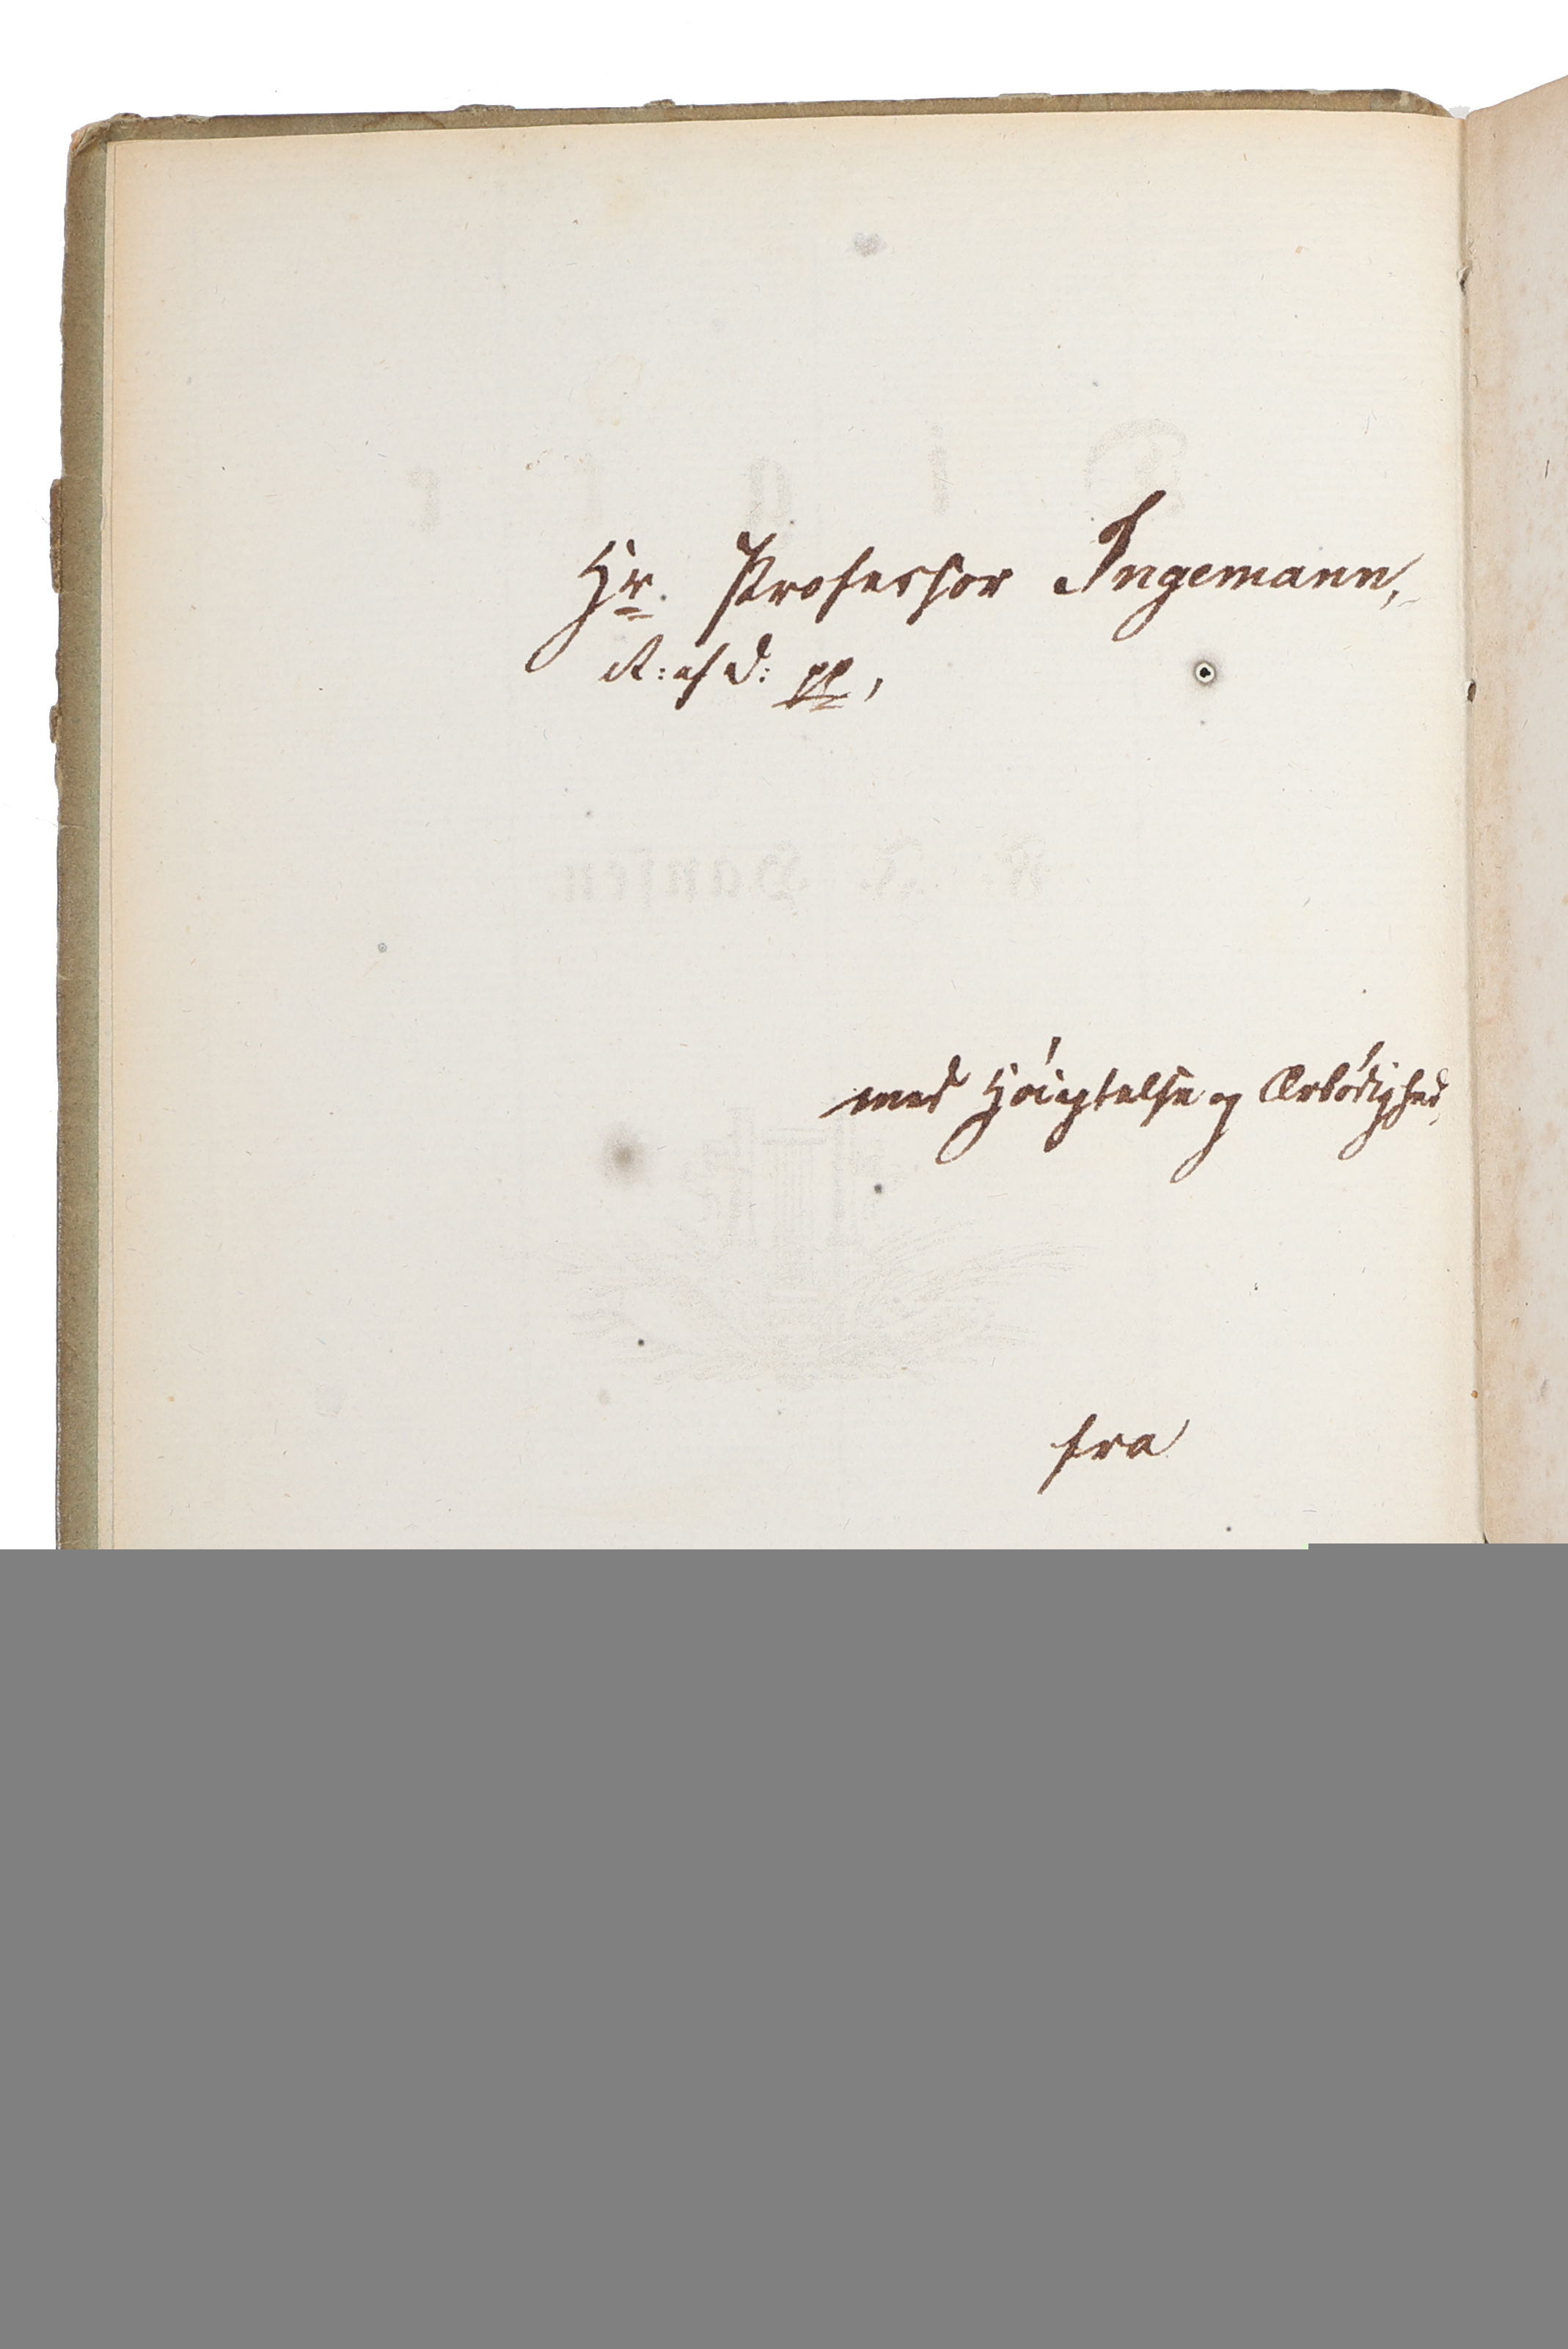 Hr. Professor Ingemann,
R: af D: pp,
med Høiagtelse og Ærbødighed,
fra